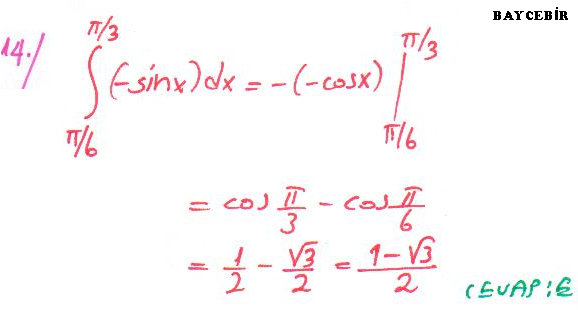 BAYCEBİR
14./ ∫_{π/6}^{π/3} (-sinx)dx = -(-cosx) |_{π/6}^{π/3}
= cos π/3 - cos π/6
= 1/2 - √3/2 = (1-√3)/2
CEVAP:E